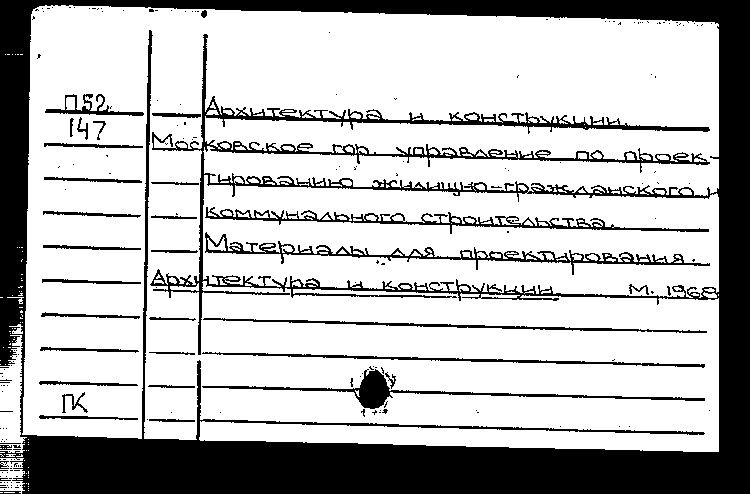 П52 Архитектура и конструкции.
147
Московское гор. управление по проек-
тированию жилищно-гражданского и
коммунального строительства.
Материалы для проектирования.
Архитектура и конструкции. М., 1968
ПК